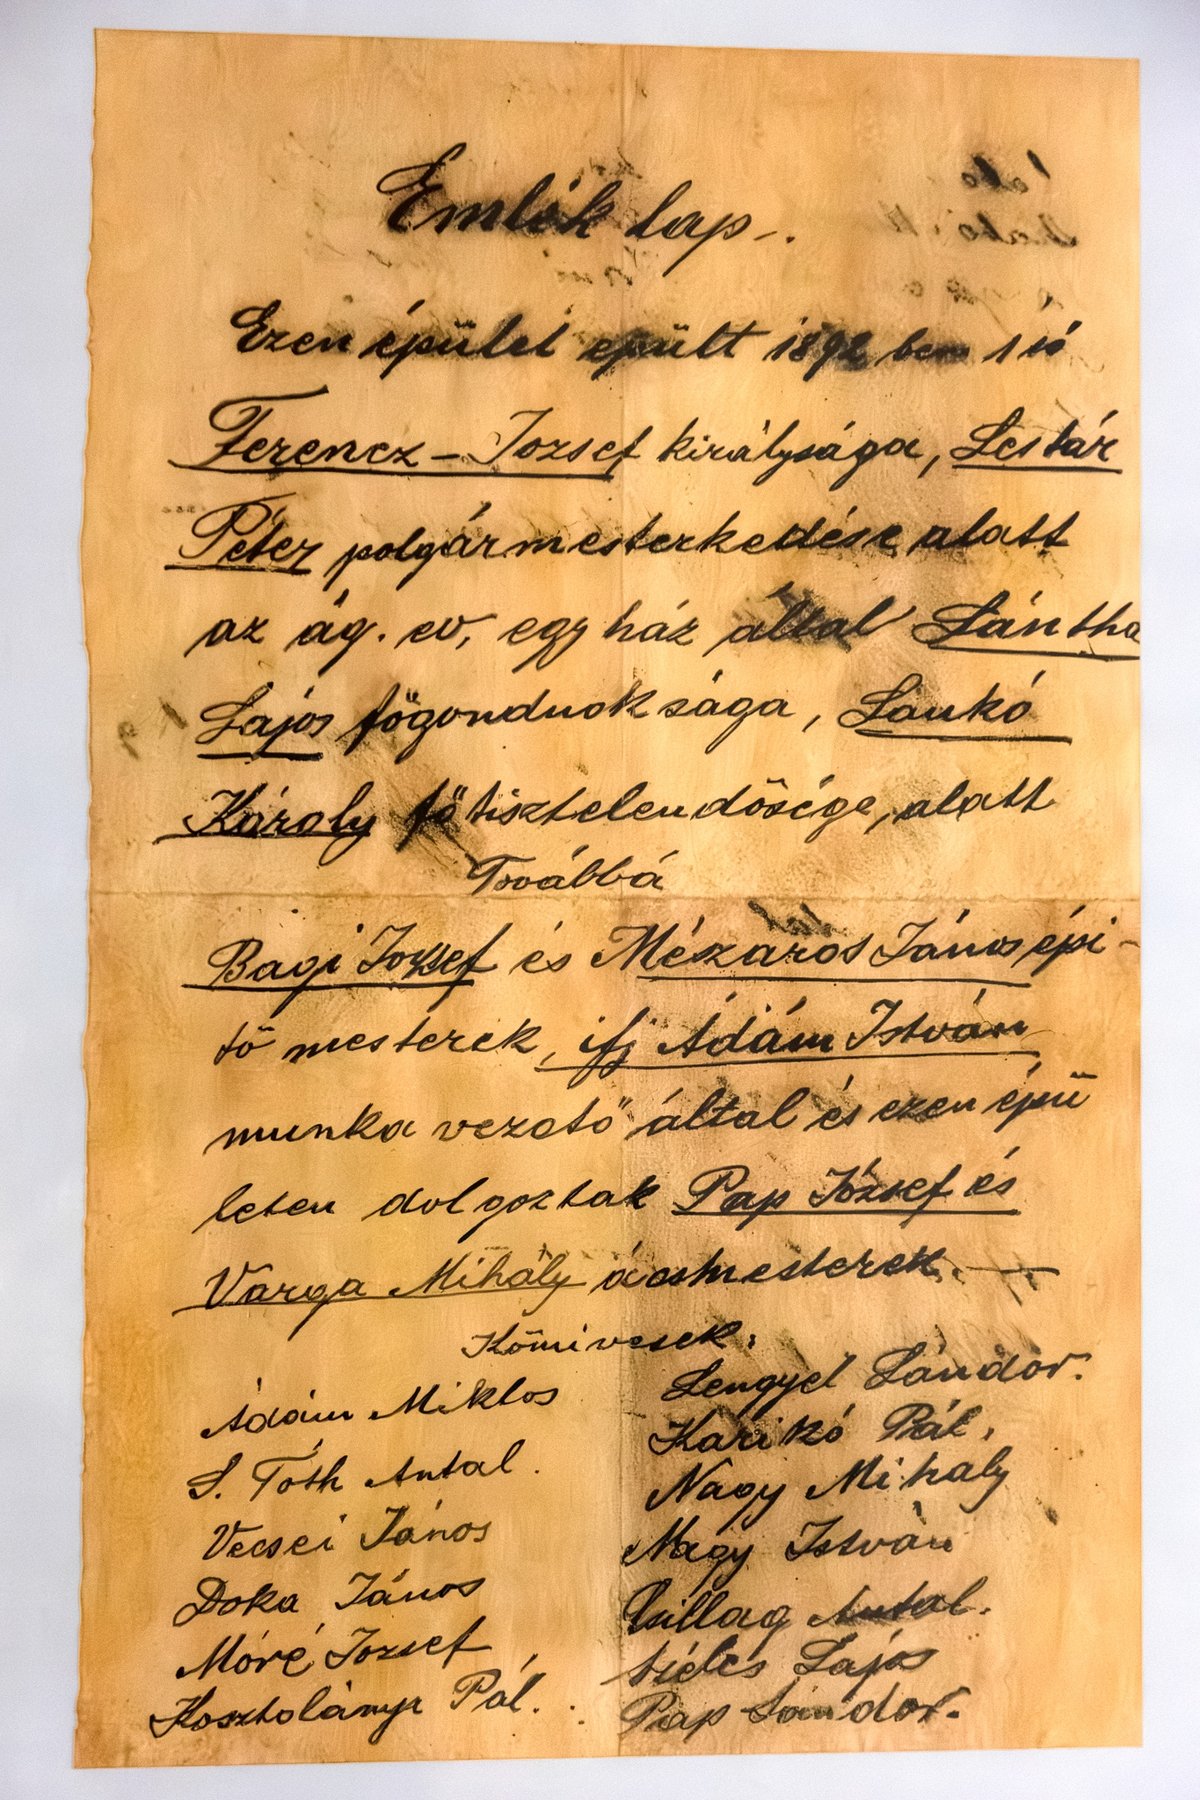 Emlék lap.
Ezen épület epült 1892 ben 1 ső
Ferencz - Jozsef királysága, Lestár
Péter polgármesterkedése alatt
az ág. ev, egyház által Lántha
Lajos főgondnoksága, Laukó
Károly főtisztelendősége, alatt
Továbbá
Bagi Jozsef és Mészáros János épi-
tő mesterek, ifj Ádám István
munka vezető által és ezen épü
leten dolgoztak Pap József és
Varga Mihály ácsmesterek. —
Kőmivesek.
Ádám Miklos
S. Tóth Antal.
Vecsei János
Doka János
Móré Jozsef
Kosztolányi Pál.
Lengyel Sándor.
Karikó Pál.
Nagy Mihaly
Nagy István
Csillag Antal.
Lajos
Pap Sándor.